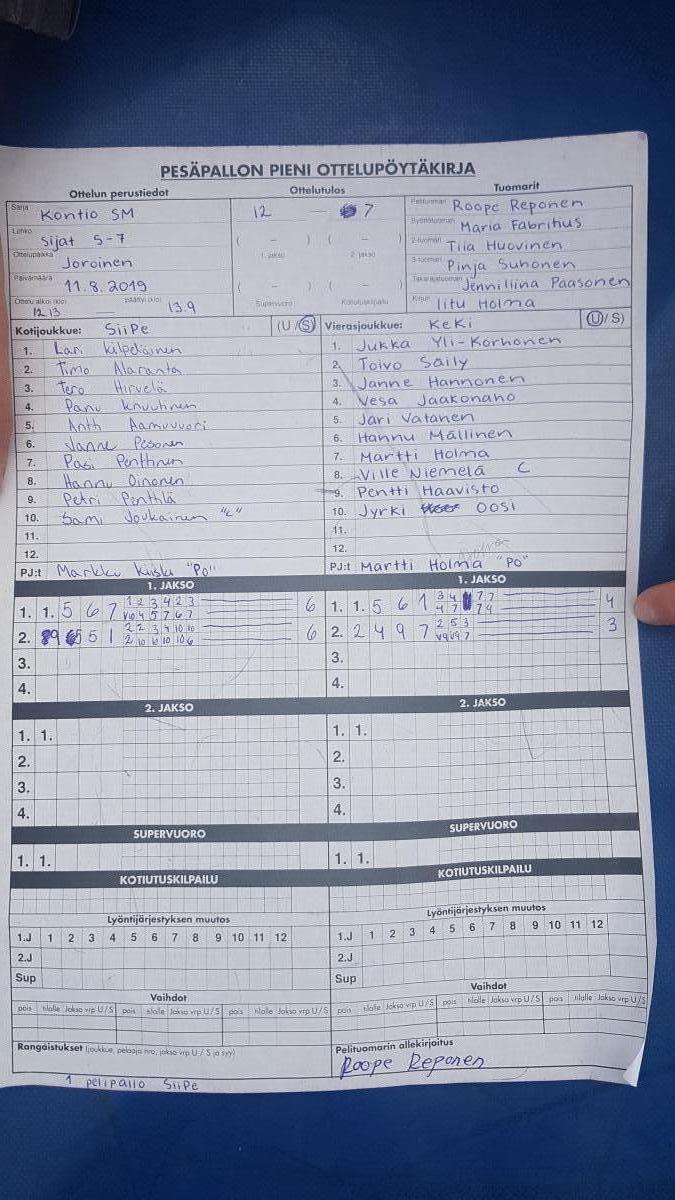 PESÄPALLON PIENI OTTELUPÖYTÄKIRJA
Ottelun perustiedot Ottelutulos Tuomarit
Sarja Kontio SM
12 — 7
Pelituomari Roope Reponen
Lohko Sijat 5-7
Syöttötuomari Maria Fabritius
2-tuomari Tiia Huovinen
Ottelupaikka Joroinen
( – ) ( – )
1. jakso 2. jakso
3-tuomari Pinja Suhonen
Päivämäärä 11.8.2019
Takarajatuomari Jenniliina Paasonen
( – ) ( – )
Supervuoro Kotiutuskilpailu
Ottelu alkoi (klo) 12.13 — päättyi (klo) 13.9
Kirjuri Iitu Holma
Kotijoukkue: SiiPe (U/S)
Vierasjoukkue: KeKi (U/S)
1. Lari Kilpeläinen
2. Timo Alaranta
3. Tero Hirvelä
4. Panu Knuutinen
5. Antti Aamuvuori
6. Janne Pesonen
7. Pasi Penttinen
8. Hannu Oinonen
9. Petri Penttilä
10. Sami Joukainen "C"
11.
12.
PJ:t Markku Kusku "PO"
1. Jukka Yli-Korhonen
2. Toivo Säily
3. Janne Hannonen
4. Vesa Jaakonaho
5. Jari Vatanen
6. Hannu Mällinen
7. Martti Holma
8. Ville Niemelä C
9. Pentti Haavisto
10. Jyrki Oosi
11.
12.
PJ:t Martti Holma "PO"
1. JAKSO
1. 1. 5 6 7 1 2 3 4 2 3 6
V10 4 5 7 6 7
2. 5 1 2 2 3 4 10 10 6
2 10 10 10 10 6
3.
4.
1. JAKSO
1. 1. 5 6 1 3 4 7 7 4
4 7 7 4
2. 2 4 9 7 2 5 3 3
V9 V9 7
3.
4.
2. JAKSO
1. 1.
2.
3.
4.
2. JAKSO
1. 1.
2.
3.
4.
SUPERVUORO
1. 1.
SUPERVUORO
1. 1.
KOTIUTUSKILPAILU
KOTIUTUSKILPAILU
Lyöntijärjestyksen muutos
1.J 1 2 3 4 5 6 7 8 9 10 11 12
2.J
Sup
Lyöntijärjestyksen muutos
1.J 1 2 3 4 5 6 7 8 9 10 11 12
2.J
Sup
Vaihdot
pois tilalle Jakso vrp U/S pois tilalle Jakso vrp U/S pois tilalle Jakso vrp U/S
Vaihdot
pois tilalle Jakso vrp U/S pois tilalle Jakso vrp U/S pois tilalle Jakso vrp U/S
Rangaistukset (joukkue, pelaaja nro, jakso vrp U / S ja syy)
1 pelipallo SiiPe
Pelituomarin allekirjoitus
Roope Reponen